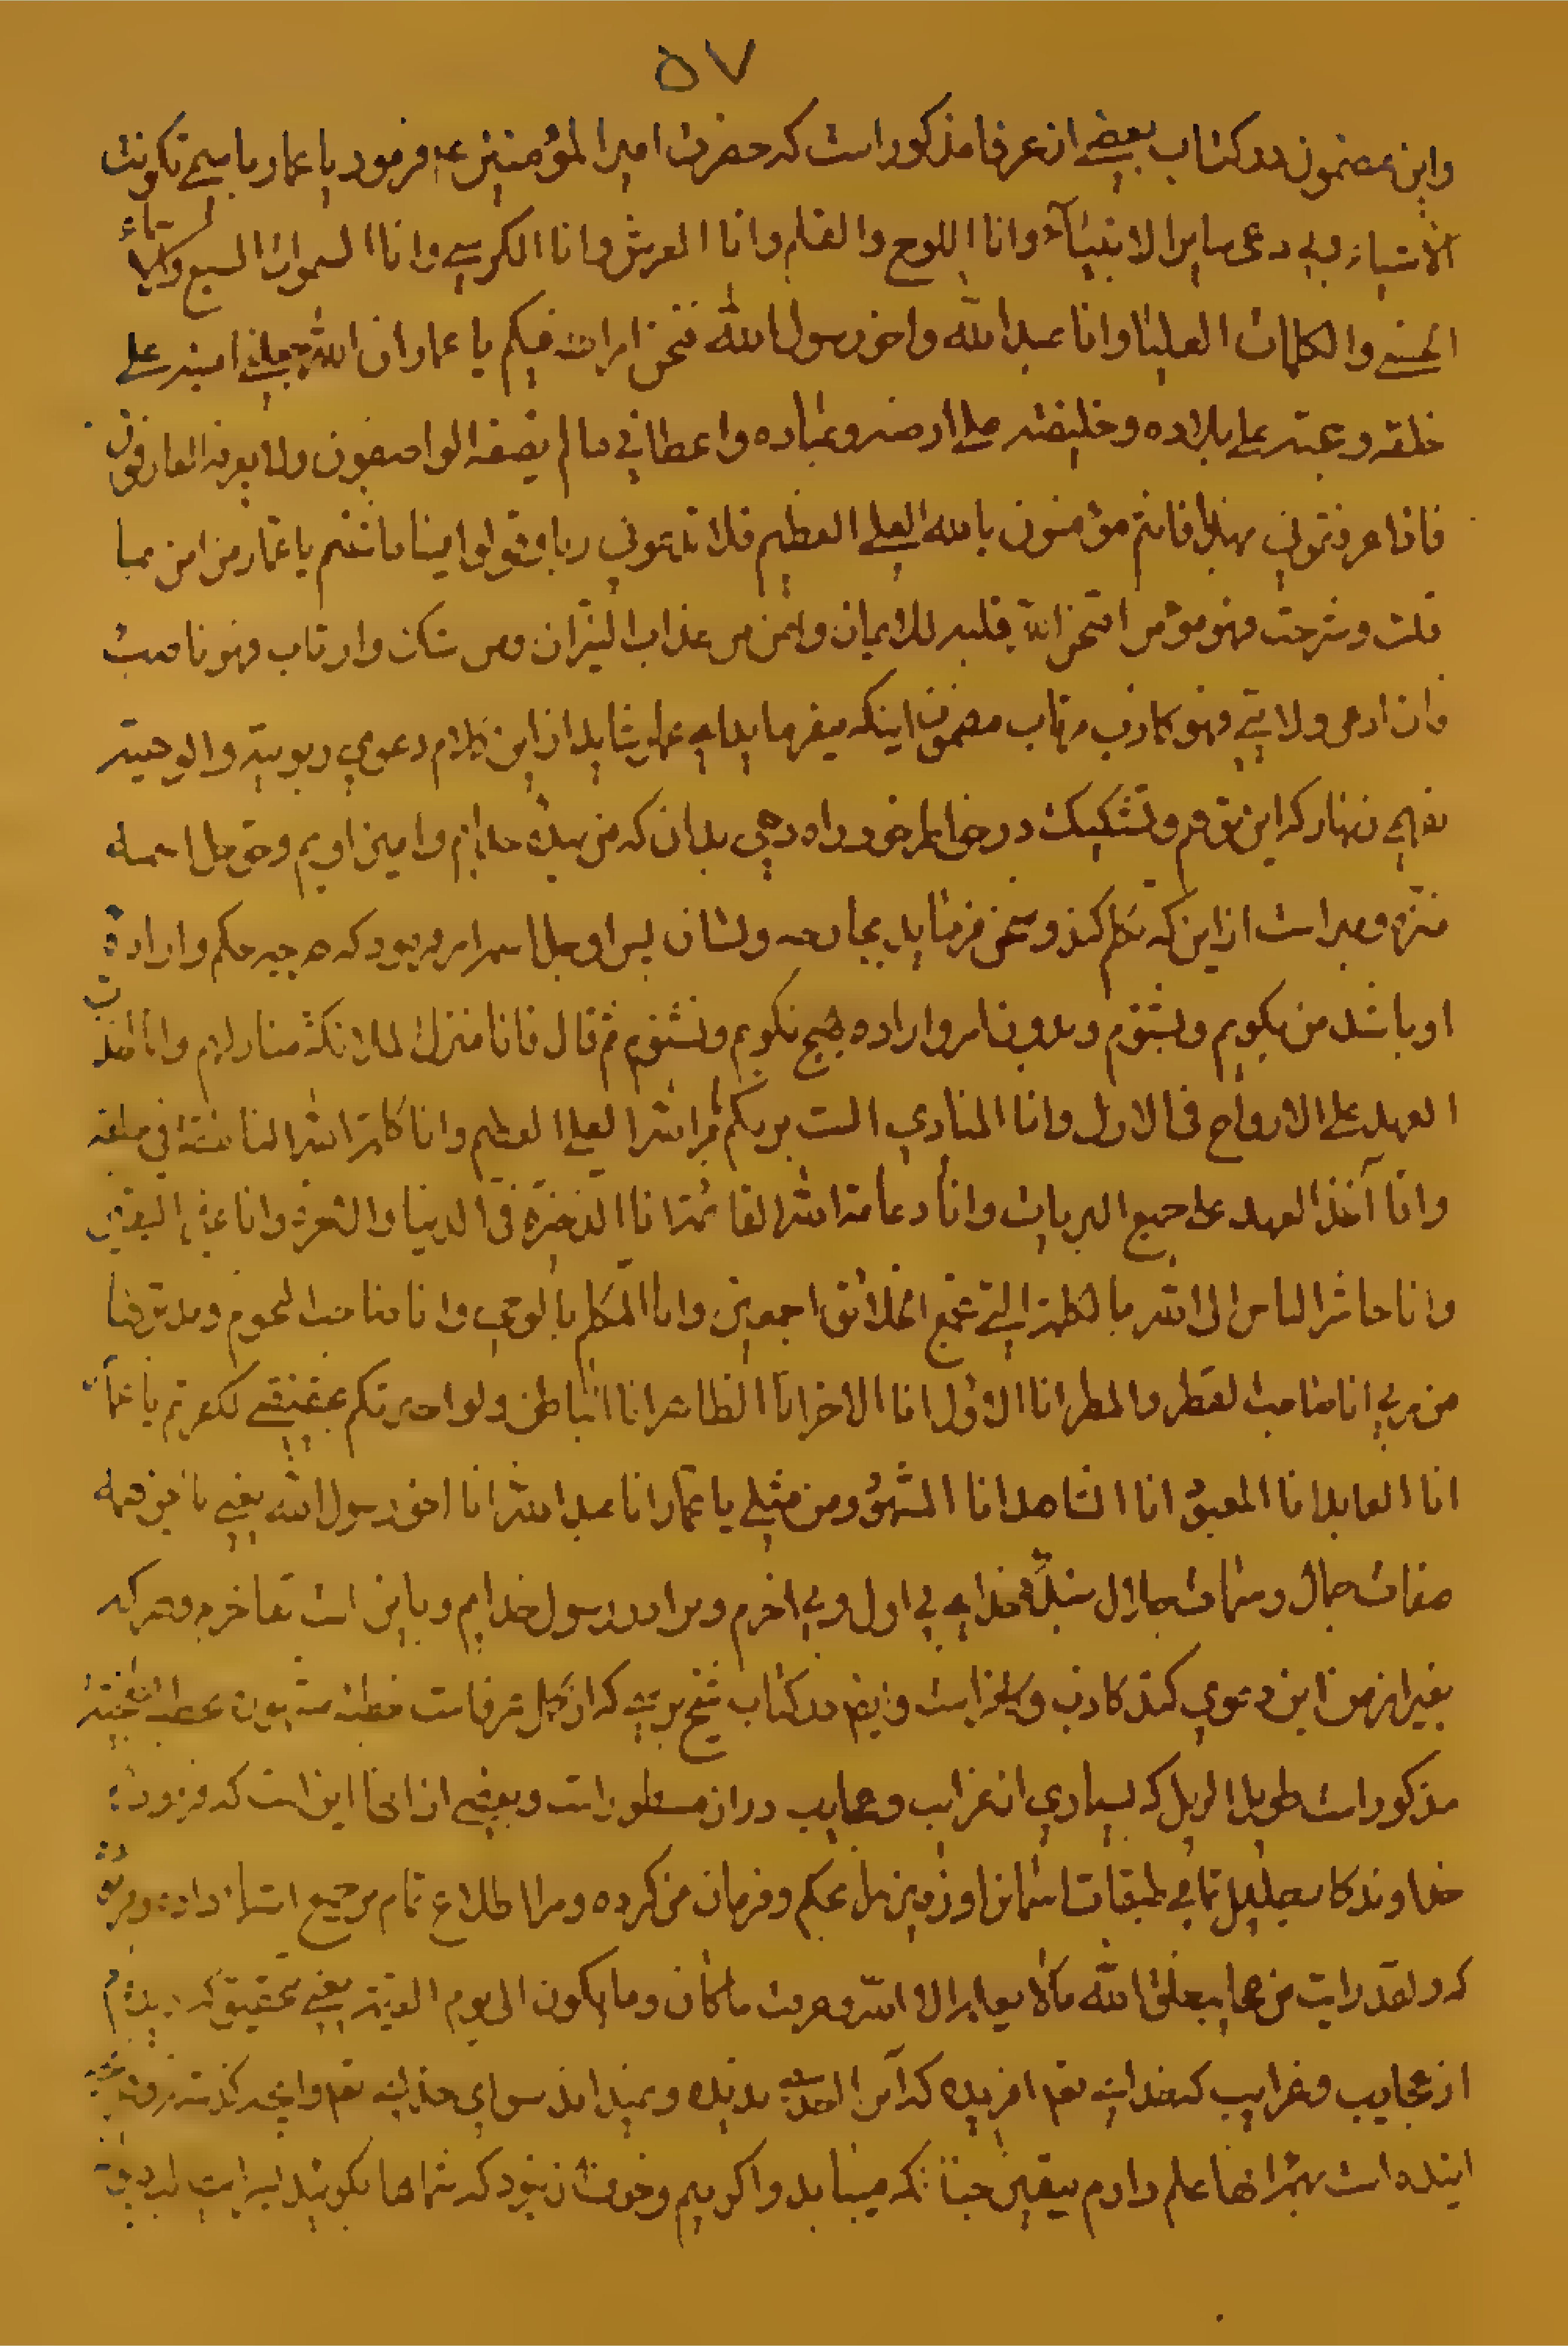 ۵۷
واین مضمون در کتاب بعضی از عرفا مذکور است که حضرت امیر المؤمنین ع فرمود یا عمار باسمی تکونت
الاشیاء وبی دعی سایر الانبیآء وانا اللوح والقلم وانا العرش وانا الکرسی وانا السموات السبع والاسماء
الحسنی والکلمات العلیا وانا عبدالله واخو رسول الله فنحن امر الله فیکم یا عمار ان الله جعلنی امینه علی
خلقه وحجته علی بلاده وخلیفته علی ارضه وعباده واعطانی مالم یصفه الواصفون ولا یعرفه العارفون
فاذا عرفتمونی بهذا فانتم مؤمنون بالله العلی العظیم فلا تدعونی ربا وقولوا فینا ماشئتم یا عمار من امن بما
قلت وشرحت فهو مؤمن امتحن الله قلبه للایمان وامن من عذاب النیران ومن شک وارتاب فهو ناصب
وان ادعی ولایتی فهو کاذب مرتاب مضمون اینکه میفرماید ای عمار شاید از این کلام دعوی ربوبیة والوهیة
بفهمی زنهار که این توهم وتشکیک در خواطر خود راه دهی بدان که من بنده خدایم وامین اویم وحق جل اسمه
منزه ومبرا است از این که تکلم کند وسخن فرماید بجارحه ولسان پس او جل اسمه امر فرمود که هر چه حکم واراده
او باشد من بگویم وبشنوم وبدون امر واراده هیچ نگویم ونشنوم ثم قال فانا منزل الملائکة منازلهم وانا اخذت
العهد علی الارواح فی الازل وانا المنادی الست بربکم بامر الله العلی العظیم وانا کلمة الله الناطقة فی خلقه
وانا آخذ العهد علی جمیع البریات وانا دعامة الله القائمة انا الذخیرة فی الدنیا والاخرة وانا الیقین
وانا حاشر الناس الی الله بالکلمة التی تجمع الخلائق اجمعین وانا المتکلم بالوحی وانا صاحب النجوم ومدبرها
من ربی انا صاحب القطر والمطر انا الاول انا الاخر انا الظاهر انا الباطن ولو اخبرتکم بحقیقتی لکفرتم یا عمار
انا العابد انا المعبود انا الشاهد انا المشهود ومن مثلی یا عمار انا عبد الله انا اخو رسول الله یعنی با این همه
صفات جمال وسمات جلال بنده خدای بی اول وبی اخرم وبرادر رسول خدایم وباین است تفاخرم وهر که
بغیر از من این دعوی کند کاذب وکافر است وایضا در کتاب شیخ برسی که از کمل عرفاست خطبه
مذکور است طویل الذیل که بسیاری از غرایب وعجایب دران مسطور است وبعضی از انها این است که فرموده
خداوند تمامی طبقات اسمانها وزمین را محکم وفرمان من کرده ومرا اطلاع تمام بر جمیع اشیاء داده وفرمود
که ولقد رایت من عجایب خلق الله مالا یعلم الا الله وعرفت ماکان وما یکون الی یوم القیمة یعنی بتحقیق که دیده ام
از عجایب وغرایب که خدای تعم افریده که آن را احدی ندیده ونمیداند سوای خدای تعم وانچه گذشته
اینده است بهمه انها علم دارم بیقین چنانکه میباید واگر بیم وخوف ان نبود که شماها بگویید